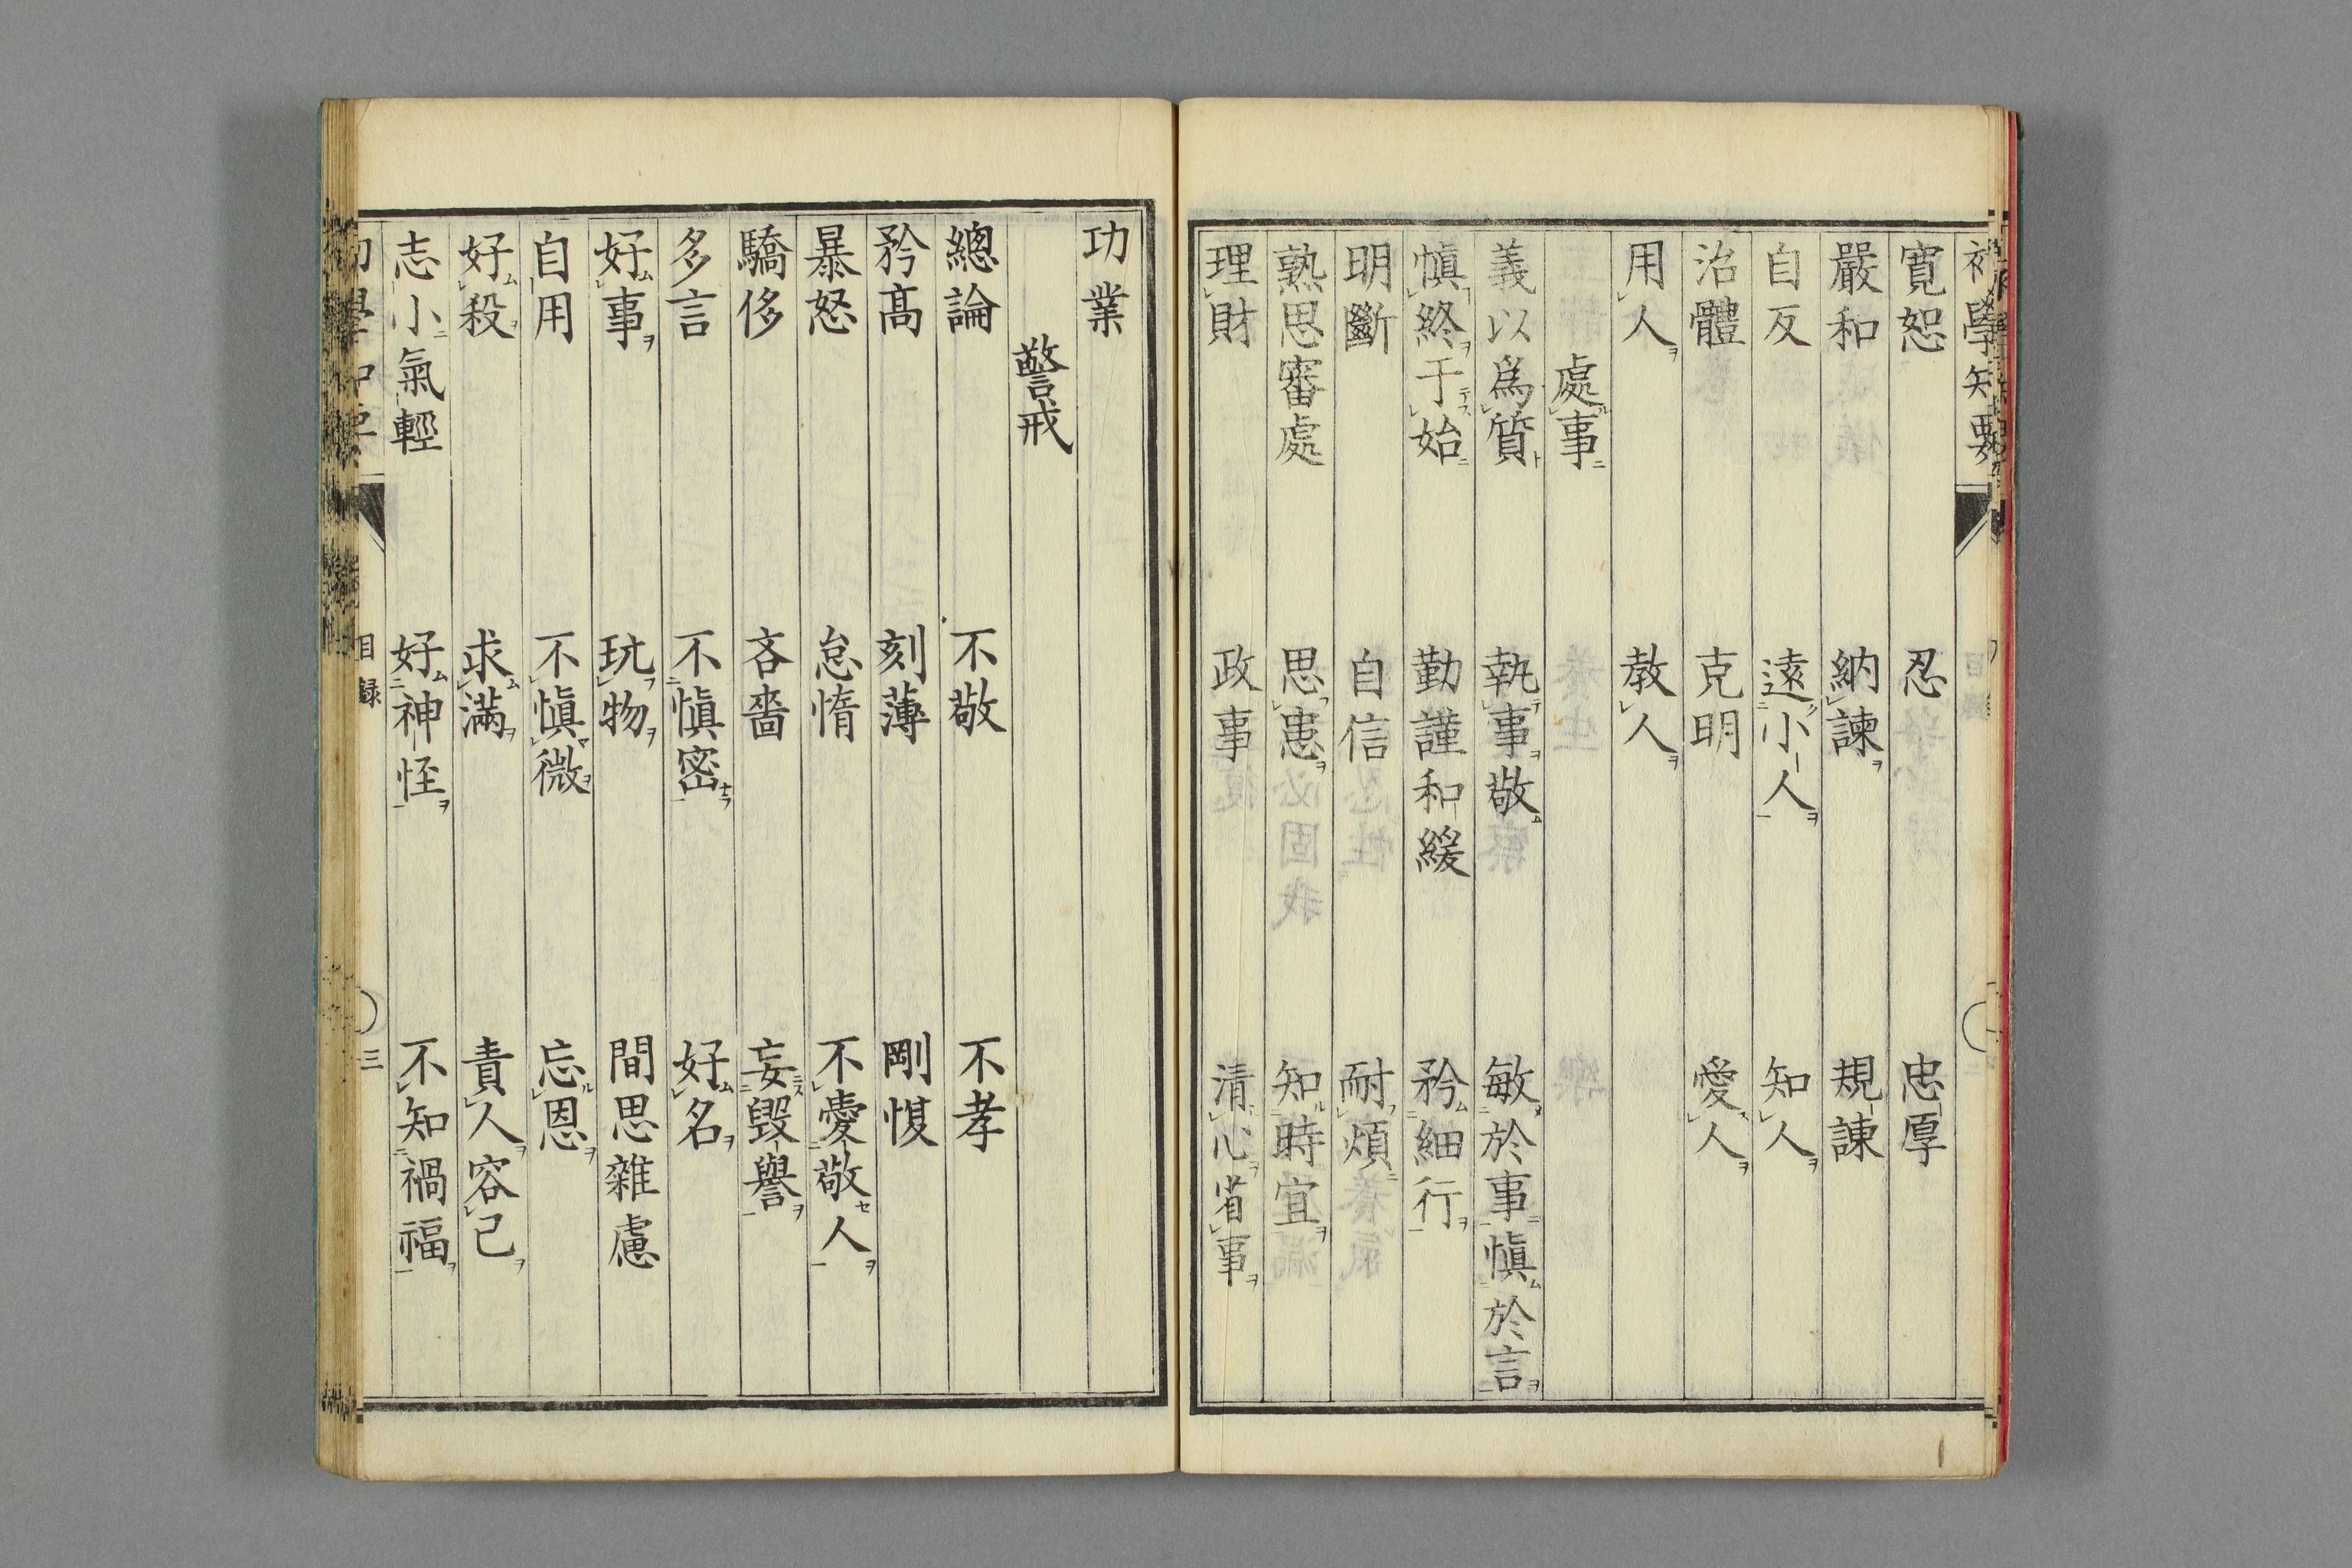 寛恕　忍　忠厚
嚴和　納諫　規諫
自反　遠小人　知人
治體　克明　愛人
用人　教人
處事
義以爲質　執事敬　敏於事愼於言
愼終于始　勤謹和緩　矜細行
明斷　自信　耐煩
熟思審處　思患　知時宜
理財　政事　清心省事
功業
警戒
總論　不敬　不孝
矜高　刻薄　剛愎
暴怒　怠惰　不愛敬人
驕侈　吝嗇　妄毀譽
多言　不愼密　好名
好事　玩物　間思雜慮
自用　不愼微　忘恩
好殺　求滿　責人容己
志小氣輕　好神怪　不知禍福
目録　三